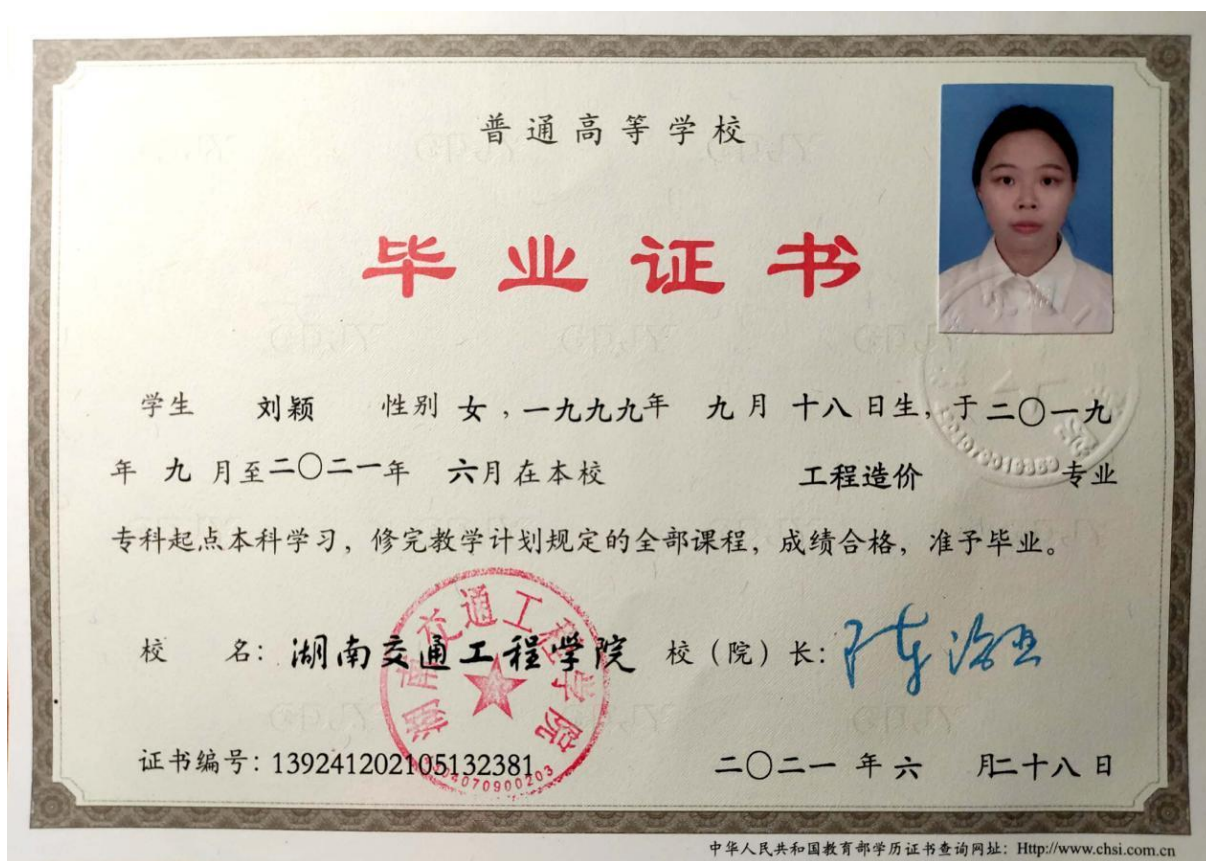 普通高等学校
毕业证书
学生 刘颖 性别 女，一九九九年 九月 十八 日生，于二〇一九
年 九 月至二〇二一年 六月在本校 工程造价 专业
专科起点本科学习，修完教学计划规定的全部课程，成绩合格，准予毕业。
校 名：湖南交通工程学院 校（院）长：
湖南交通工程学院
证书编号：139241202105132381
二〇二一 年 六 月二十八 日
中华人民共和国教育部学历证书查询网址：Http://www.chsi.com.cn